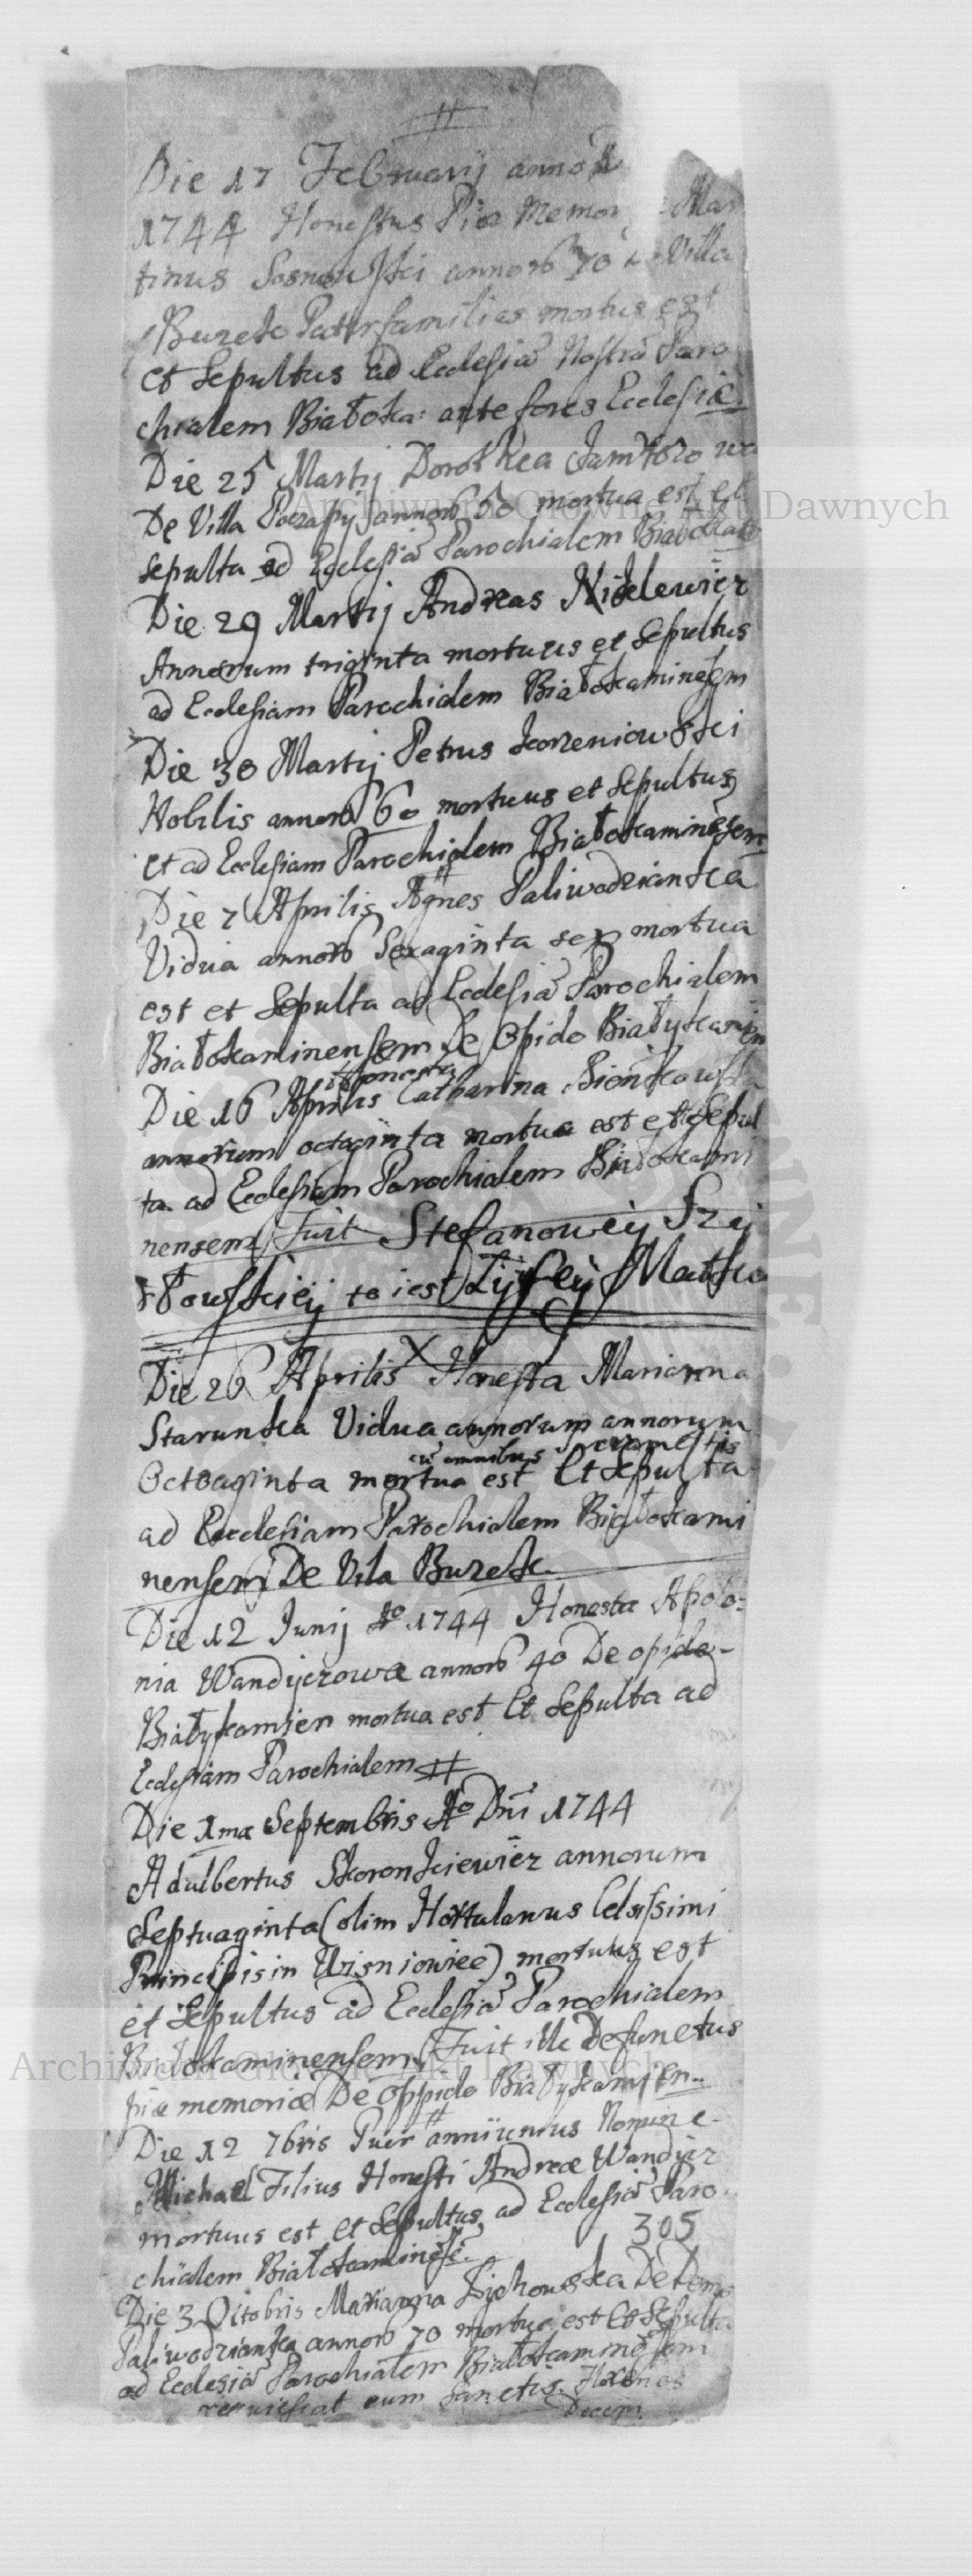 Die 17 Februarij anno
1744 Honestus Piæ Memor Mar
tinus Sosnowski annorũ 70 Villa
Buzek Paterfamilias mortus est
et Sepultus ad Ecclesiã Nostrã Paro
chialem Białoka: ante fores Ecclesiæ.
Die 25 Martij Dorothea
De Villa Poczapy annorũ 50 mortua est et
sepulta ad Ecclesiã Parochialem
Die 29 Martij Andreas
Annorum triginta mortuus et Sepultus
ad Ecclesiam Parochialem
Die 30 Martij Petrus Korzeniowski
Nobilis annorũ 60 mortuus et Sepultus
et ad Ecclesiam Parochialem Białokaminẽsem
Die 7 Aprilis Agnes Paliwodzianka
Vidua annorũ Sexaginta sex mortua
est et Sepulta ad Ecclesiã Parochialem
Białokaminensem De Opido Białykamien
Honesta
Die 16 Aprilis Catharina
annorum octoginta mortua est et Sepul
ta ad Ecclesiam Parochialem Białokami
nensem Fuit Stefanowey Szy
to iest Łysey Matka
Die 26 Aprilis Honesta Marianna
Starunka Vidua annorum annorum
cũ omnibus
Octoaginta mortua est Et Sepulta
ad Ecclesiam Parochialem Białokami
nensem De Vila Buzek
Die 12 Junij Ao 1744 Honesta Apolo:
nia Wandyczowa annorũ 40 De opido
Białykamien mortua est Et Sepulta ad
Ecclesiam Parochialem
Die 1ma Septembris Ao Dni 1744
Adalbertus Skoronkiewicz annorum
Septuaginta (olim Hortulanus Celsissimi
Principis in Wisniowiec) mortuus est
et Sepultus ad Ecclesiã Parochialem
Białokaminensem Fuit ille Defunctus
piæ memoriæ De oppido Białykamien
Die 12 7bris Puer anni unius Nomine
Michael Filius Honesti Andreæ Wandycz
mortuus est et Sepultus ad Ecclesiã Paro
305
chialem Białokaminẽsẽ.
Die 3 Octobris Marianna De Domo
Paliwodzianka annorũ 70 mortua est Et Sepulta
ad Ecclesiã Parochialem Białokaminẽsem
requiescat cum Sanctis.
Archiwum Główne Akt Dawnych
Archiwum Główne Akt Dawnych